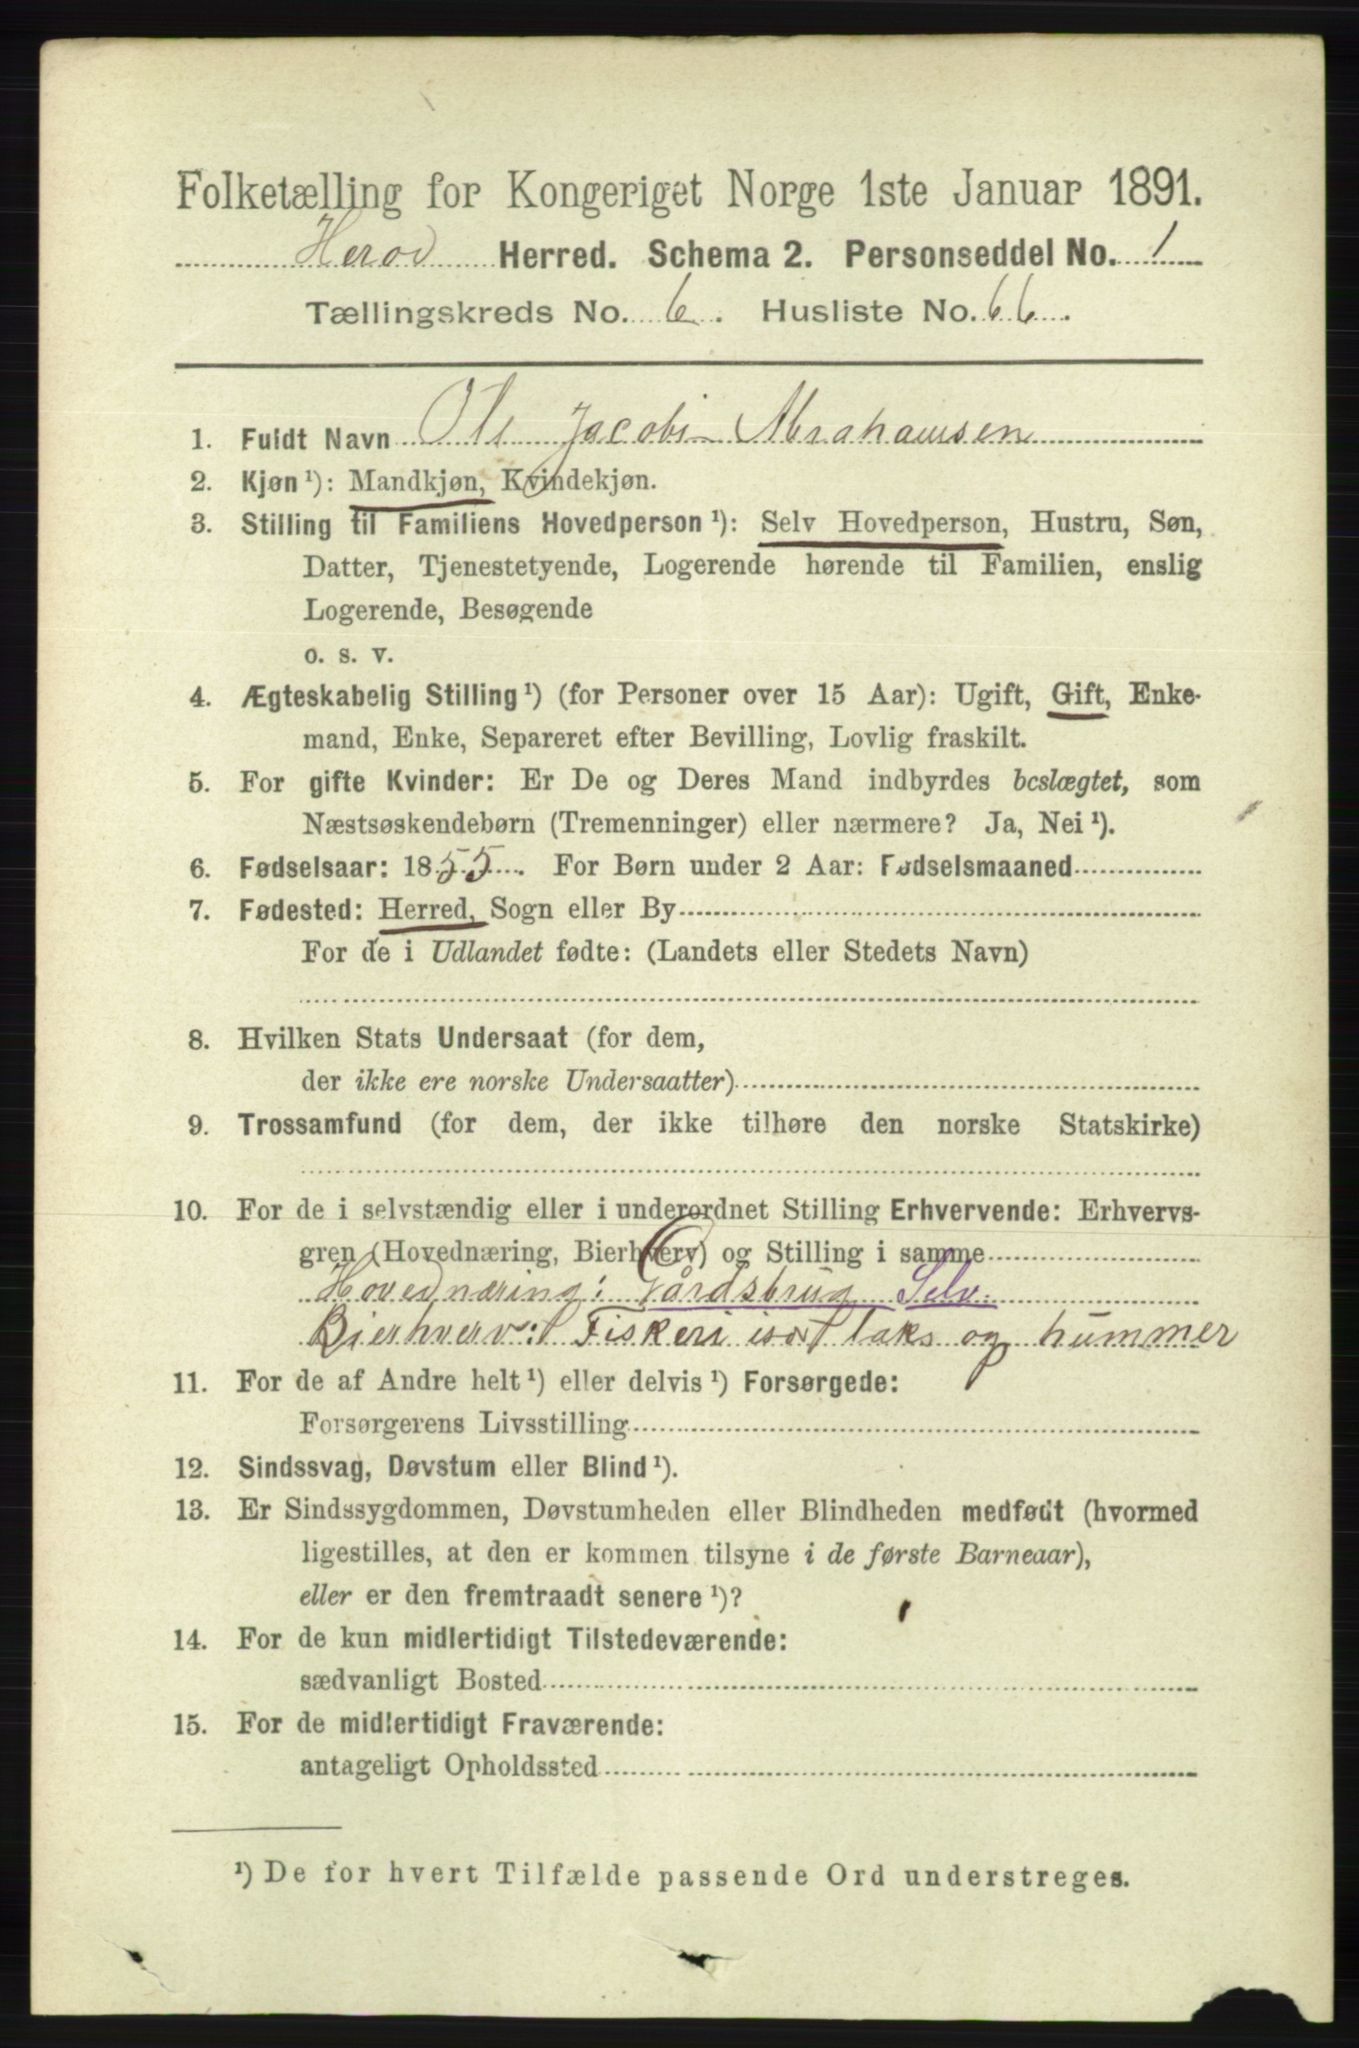 Folketælling for Kongeriget Norge 1ste Januar 1891.
Herød Herred. Schema 2. Personseddel No. 1
Tællingskreds No. 6. Husliste No. 66.
1. Fuldt Navn Ole Jacob Abrahamsen
2. Kjøn ¹): Mandkjøn, Kvindekjøn.
3. Stilling til Familiens Hovedperson ¹): Selv Hovedperson, Hustru, Søn,
Datter, Tjenestetyende, Logerende hørende til Familien, enslig
Logerende, Besøgende
o. s. v.
4. Ægteskabelig Stilling ¹) (for Personer over 15 Aar): Ugift, Gift, Enke-
mand, Enke, Separeret efter Bevilling, Lovlig fraskilt.
5. For gifte Kvinder: Er De og Deres Mand indbyrdes beslægtet, som
Næstsøskendebørn (Tremenninger) eller nærmere? Ja, Nei ¹).
6. Fødselsaar: 1855. For Børn under 2 Aar: Fødselsmaaned
7. Fødested: Herred, Sogn eller By
For de i Udlandet fødte: (Landets eller Stedets Navn)
8. Hvilken Stats Undersaat (for dem,
der ikke ere norske Undersaatter)
9. Trossamfund (for dem, der ikke tilhøre den norske Statskirke)
10. For de i selvstændig eller i underordnet Stilling Erhvervende: Erhvervs-
gren (Hovednæring, Bierhverv) og Stilling i samme
Hovednæring: Gårdsbrug Selv.
Bierhverv: Fiskeri især laks og hummer
11. For de af Andre helt ¹) eller delvis ¹) Forsørgede:
Forsørgerens Livsstilling
12. Sindssvag, Døvstum eller Blind ¹).
13. Er Sindssygdommen, Døvstumheden eller Blindheden medfødt (hvormed
ligestilles, at den er kommen tilsyne i de første Barneaar),
eller er den fremtraadt senere ¹)?
14. For de kun midlertidigt Tilstedeværende:
sædvanligt Bosted
15. For de midlertidigt Fraværende:
antageligt Opholdssted
¹) De for hvert Tilfælde passende Ord understreges.